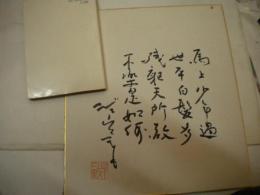 馬上少年過
世平白髪多
残軀天所赦
不楽是如何